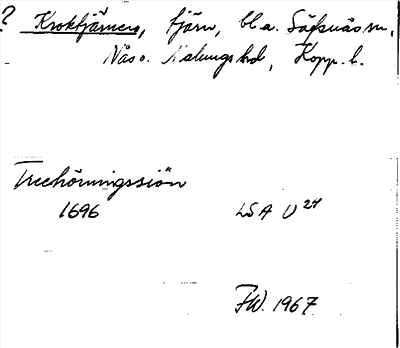 ? Kroktjärnen, tjärn, bl a. Säfsnäs sn,
Nås o. Malungs hd, Kopp. l.
Treehörningssiön
1696 LSA U 24
FW. 1967